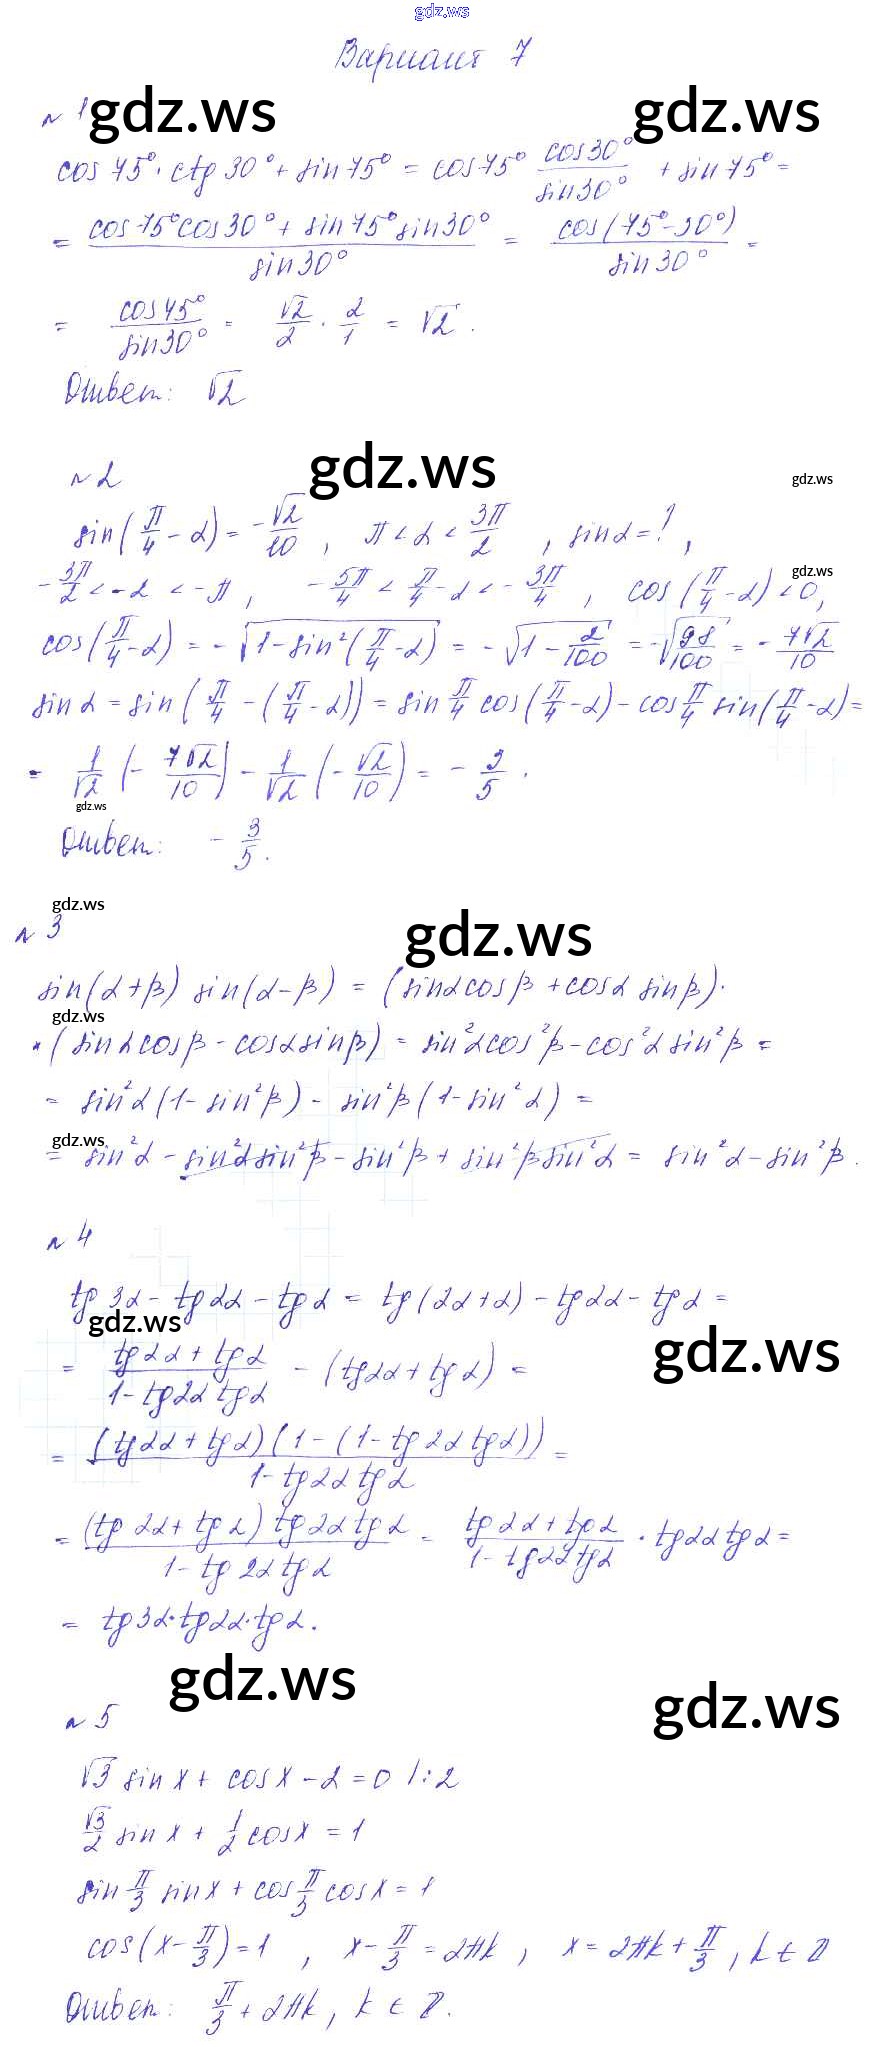 gdz.ws
Вариант 7
№ 1 gdz.ws gdz.ws
cos 75° · ctg 30° + sin 75° = cos 75° cos30°/sin30° + sin 75° =
= (cos 75° cos 30° + sin 75° sin 30°)/sin 30° = cos(75° - 30°)/sin 30° =
= cos 45°/sin 30° = √2/2 · 2/1 = √2.
Ответ: √2
№ 2 gdz.ws gdz.ws
sin(π/4 - α) = -√2/10, π < α < 3π/2, sin α = ?,
gdz.ws
-3π/2 < -α < -π, -5π/4 < π/4 - α < -3π/4, cos(π/4 - α) < 0,
cos(π/4 - α) = -√(1 - sin²(π/4 - α)) = -√(1 - 2/100) = -√(98/100) = -7√2/10
sin α = sin(π/4 - (π/4 - α)) = sin π/4 cos(π/4 - α) - cos π/4 sin(π/4 - α) =
= 1/√2 (-7√2/10) - 1/√2 (-√2/10) = -3/5.
gdz.ws
Ответ: -3/5.
gdz.ws
№ 3 gdz.ws
sin(α + β) sin(α - β) = (sin α cos β + cos α sin β)·
gdz.ws
× (sin α cos β - cos α sin β) = sin²α cos²β - cos²α sin²β =
= sin²α (1 - sin²β) - sin²β (1 - sin²α) =
gdz.ws
= sin²α - sin²α sin²β - sin²β + sin²β sin²α = sin²α - sin²β.
№ 4
tg 3α - tg 2α - tg α = tg(2α + α) - tg 2α - tg α =
gdz.ws gdz.ws
= (tg 2α + tg α)/(1 - tg 2α tg α) - (tg 2α + tg α) =
= (tg 2α + tg α)(1 - (1 - tg 2α tg α))/(1 - tg 2α tg α) =
= (tg 2α + tg α) tg 2α tg α/(1 - tg 2α tg α) = (tg 2α + tg α)/(1 - tg 2α tg α) · tg 2α tg α =
= tg 3α · tg 2α · tg α.
gdz.ws gdz.ws
№ 5
√3 sin x + cos x - 2 = 0 | : 2
√3/2 sin x + 1/2 cos x = 1
sin π/3 sin x + cos π/3 cos x = 1
cos(x - π/3) = 1, x - π/3 = 2πk, x = 2πk + π/3, k ∈ Z
Ответ: π/3 + 2πk, k ∈ Z.